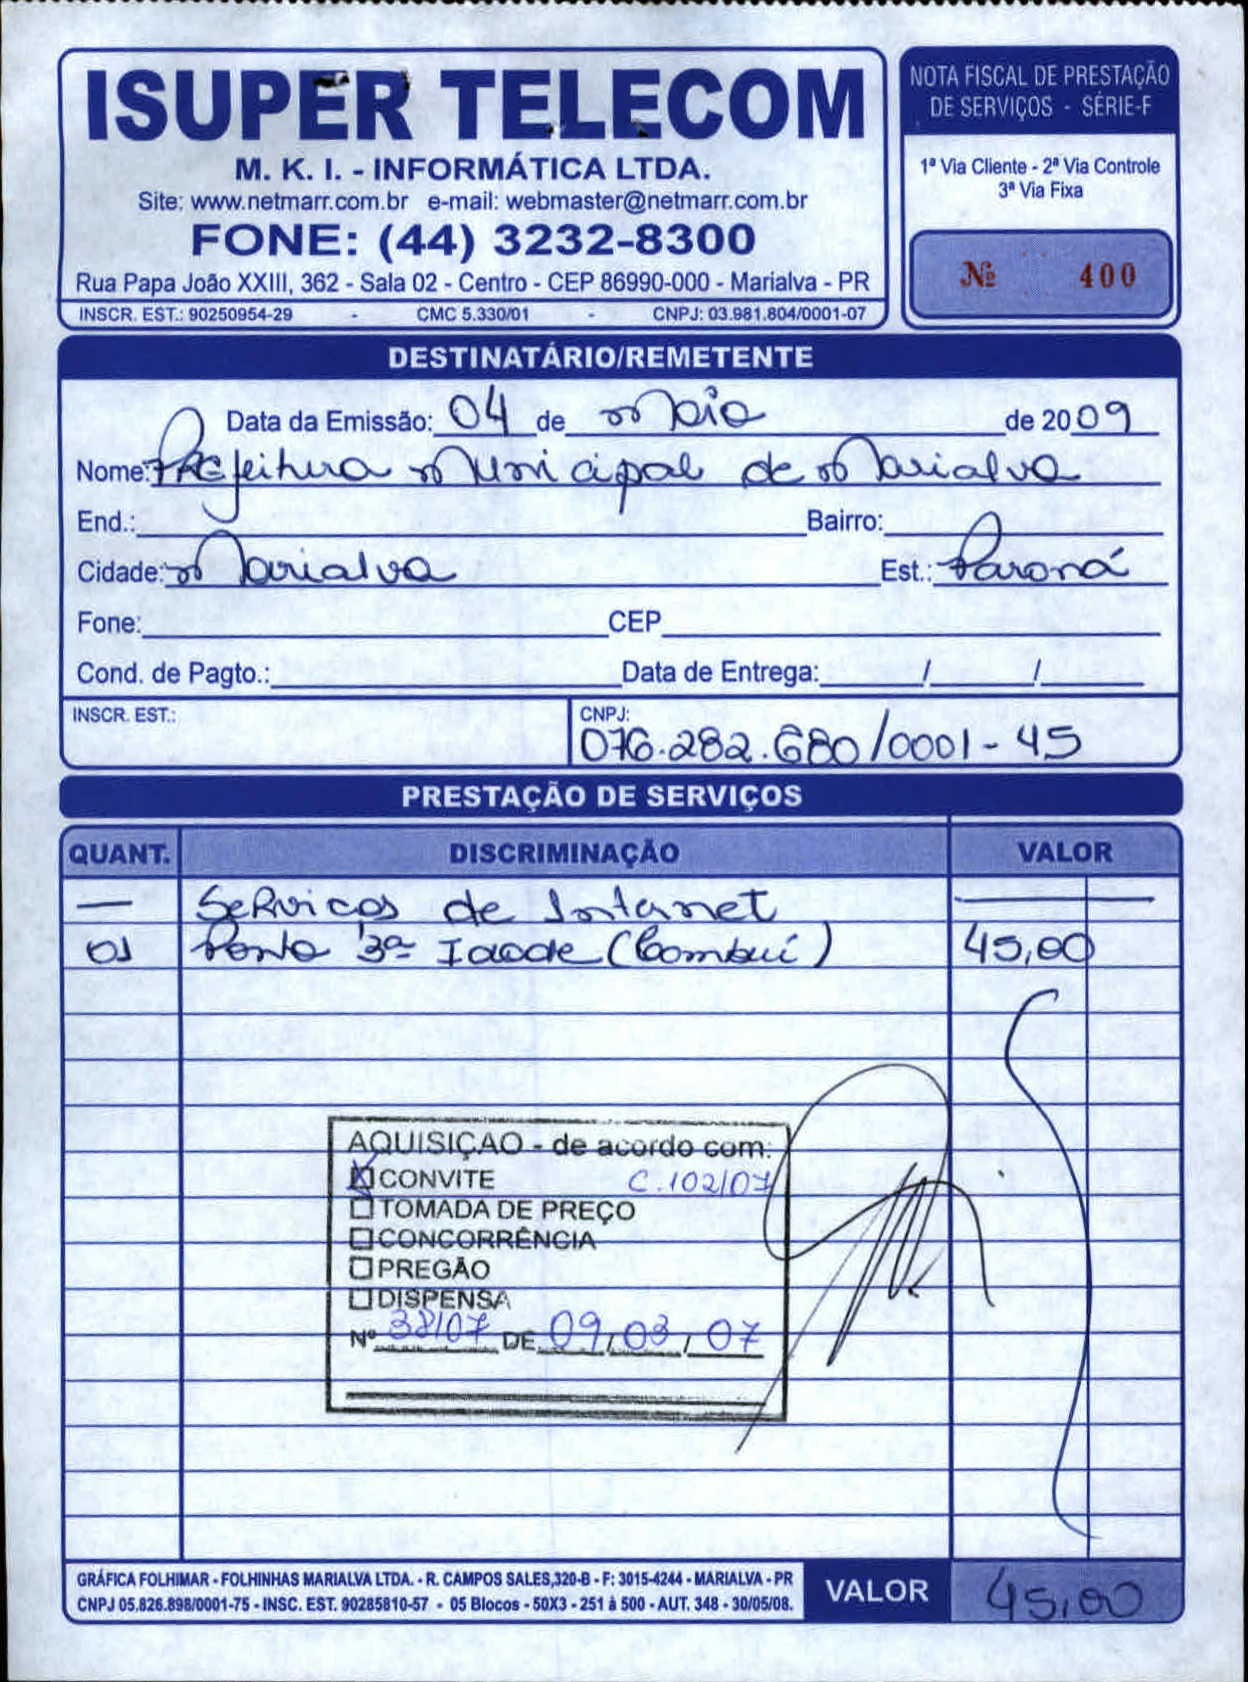 ISUPER TELECOM
M. K. I. - INFORMÁTICA LTDA.
Site: www.netmarr.com.br e-mail: webmaster@netmarr.com.br
FONE: (44) 3232-8300
Rua Papa João XXIII, 362 - Sala 02 - Centro - CEP 86990-000 - Marialva - PR
INSCR. EST.: 90250954-29 - CMC 5.330/01 - CNPJ: 03.981.804/0001-07
NOTA FISCAL DE PRESTAÇÃO
DE SERVIÇOS - SÉRIE-F
1ª Via Cliente - 2ª Via Controle
3ª Via Fixa
Nº 400
DESTINATÁRIO/REMETENTE
Data da Emissão: 04 de Maio de 2009
Nome: Prefeitura Municipal de Marialva
End.: Bairro:
Cidade: Marialva Est.: Paraná
Fone: CEP
Cond. de Pagto.: Data de Entrega: / /
INSCR. EST.: CNPJ:
076.282.680/0001-45
PRESTAÇÃO DE SERVIÇOS
QUANT. DISCRIMINAÇÃO VALOR
— Servicos de Internet —
01 Ponto 3ª Idade (Cambuí) 45,00
AQUISIÇAO - de acordo com:
CONVITE C.102/07
TOMADA DE PREÇO
CONCORRÊNCIA
PREGÃO
DISPENSA
Nº 38/07 DE 09/03/07
GRÁFICA FOLHIMAR - FOLHINHAS MARIALVA LTDA. - R. CAMPOS SALES,320-B - F: 3015-4244 - MARIALVA - PR
CNPJ 05.826.898/0001-75 - INSC. EST. 90285810-57 - 05 Blocos - 50X3 - 251 à 500 - AUT. 348 - 30/05/08.
VALOR 45,00